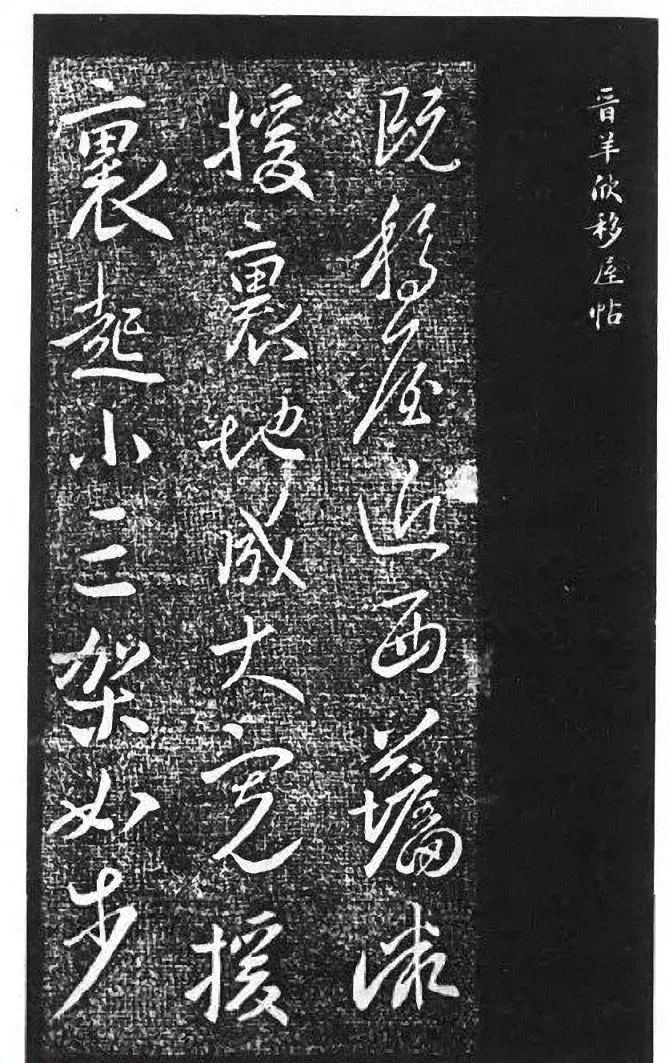 晋羊欣移屋帖
既移屋近西
援裏地成大寬援
裏起小三架如步